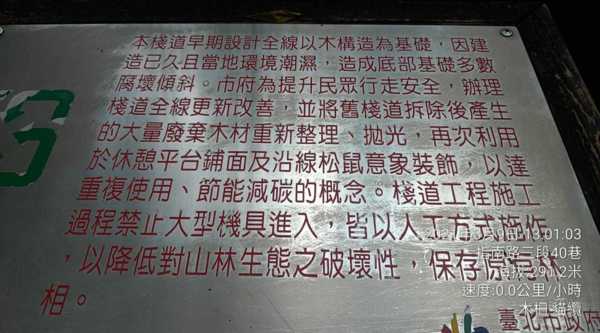 本棧道早期設計全線以木構造為基礎，因建
造已久且當地環境潮濕，造成底部基礎多數
腐壞傾斜。市府為提升民眾行走安全，辦理
棧道全線更新改善，並將舊棧道拆除後產生
的大量廢棄木材重新整理、拋光，再次利用
於休憩平台鋪面及沿線松鼠意象裝飾，以達
重複使用、節能減碳的概念。棧道工程施工
過程禁止大型機具進入，皆以人工方式施作
，以降低對山林生態之破壞性，保存原有
相。
13:01:03
指南路三段40巷
291.2米
速度:0.0公里/小時
木柵貓纜
臺北市政府